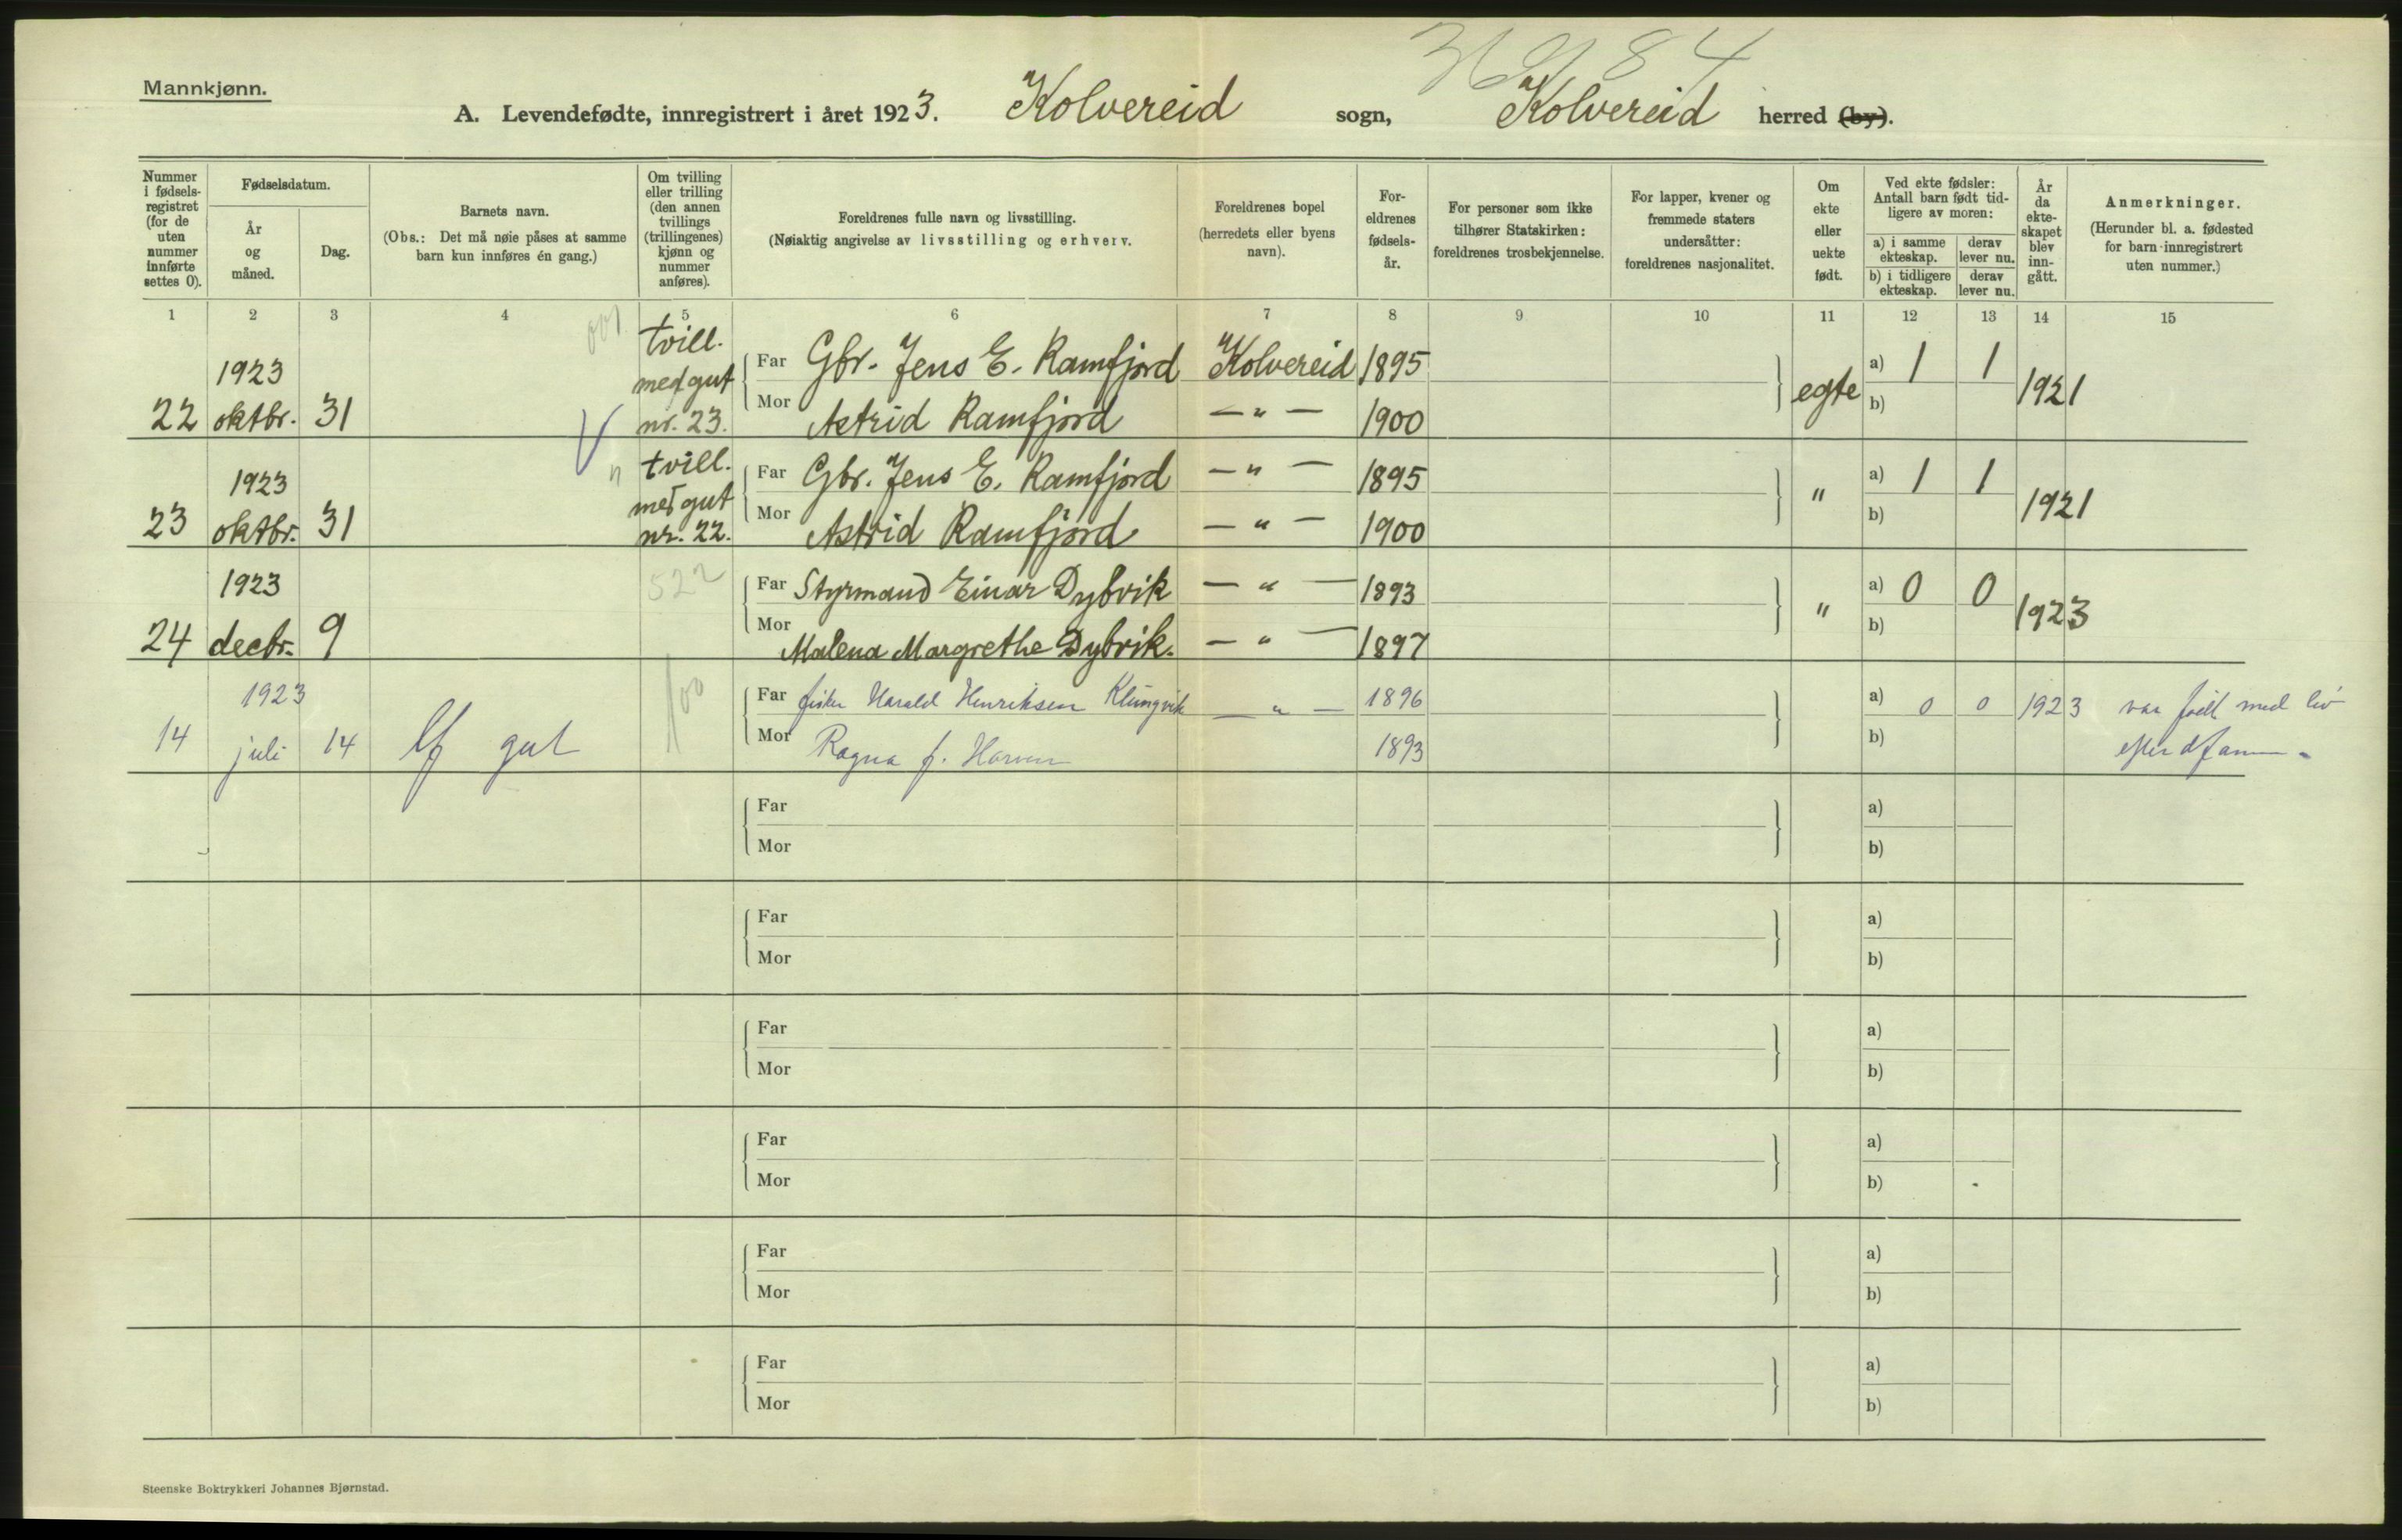 Mannkjønn.
A. Levendefødte, innregistrert i året 1923. Kolvereid sogn, Kolvereid herred (by).
Nummer i fødsels-registret (for de uten nummer innførte settes 0).
Fødselsdatum.
År og måned.
Dag.
Barnets navn.
(Obs.: Det må nøie påses at samme barn kun innføres én gang.)
Om tvilling eller trilling (den annen tvillings (trillingenes) kjønn og nummer anføres).
Foreldrenes fulle navn og livsstilling.
(Nøiaktig angivelse av livsstilling og erhverv.
Foreldrenes bopel (herredets eller byens navn).
For-eldrenes fødsels-år.
For personer som ikke tilhører Statskirken: foreldrenes trosbekjennelse.
For lapper, kvener og fremmede staters undersåtter: foreldrenes nasjonalitet.
Om ekte eller uekte født.
Ved ekte fødsler: Antall barn født tid-ligere av moren:
a) i samme ekteskap. derav lever nu.
b) i tidligere ekteskap. derav lever nu.
År da ekte-skapet blev inn-gått.
Anmerkninger.
(Herunder bl. a. fødested for barn innregistrert uten nummer.)
1 2 3 4 5 6 7 8 9 10 11 12 13 14 15
1923 tvill. Far Gbr. Jens E. Ramfjord Kolvereid 1895 a) 1 1
22 oktbr. 31 med gut nr. 23. Mor Astrid Ramfjord — " — 1900 egte b) 1921
1923 tvill. Far Gbr. Jens E. Ramfjord — " — 1895 a) 1 1
23 oktbr. 31 med gut nr. 22. Mor Astrid Ramfjord — " — 1900 " b) 1921
1923 522 Far Styrmand Einar Dybvik — " — 1893 a) 0 0
24 decbr. 9 Mor Malena Margrethe Dybvik. — " — 1897 " b) 1923
1923 Far fisker Harald Henriksen Klungvik — " — 1896 a) 0 0 1923 var født med liv
14 juli 14 gut Mor Ragna f. 1893 b) efter
Far a)
Mor b)
Far a)
Mor b)
Far a)
Mor b)
Far a)
Mor b)
Far a)
Mor b)
Far a)
Mor b)
Steenske Boktrykkeri Johannes Bjørnstad.